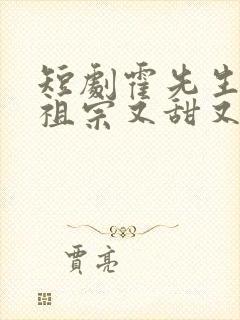 短劇霍先生
祖宗又甜又
賈亮